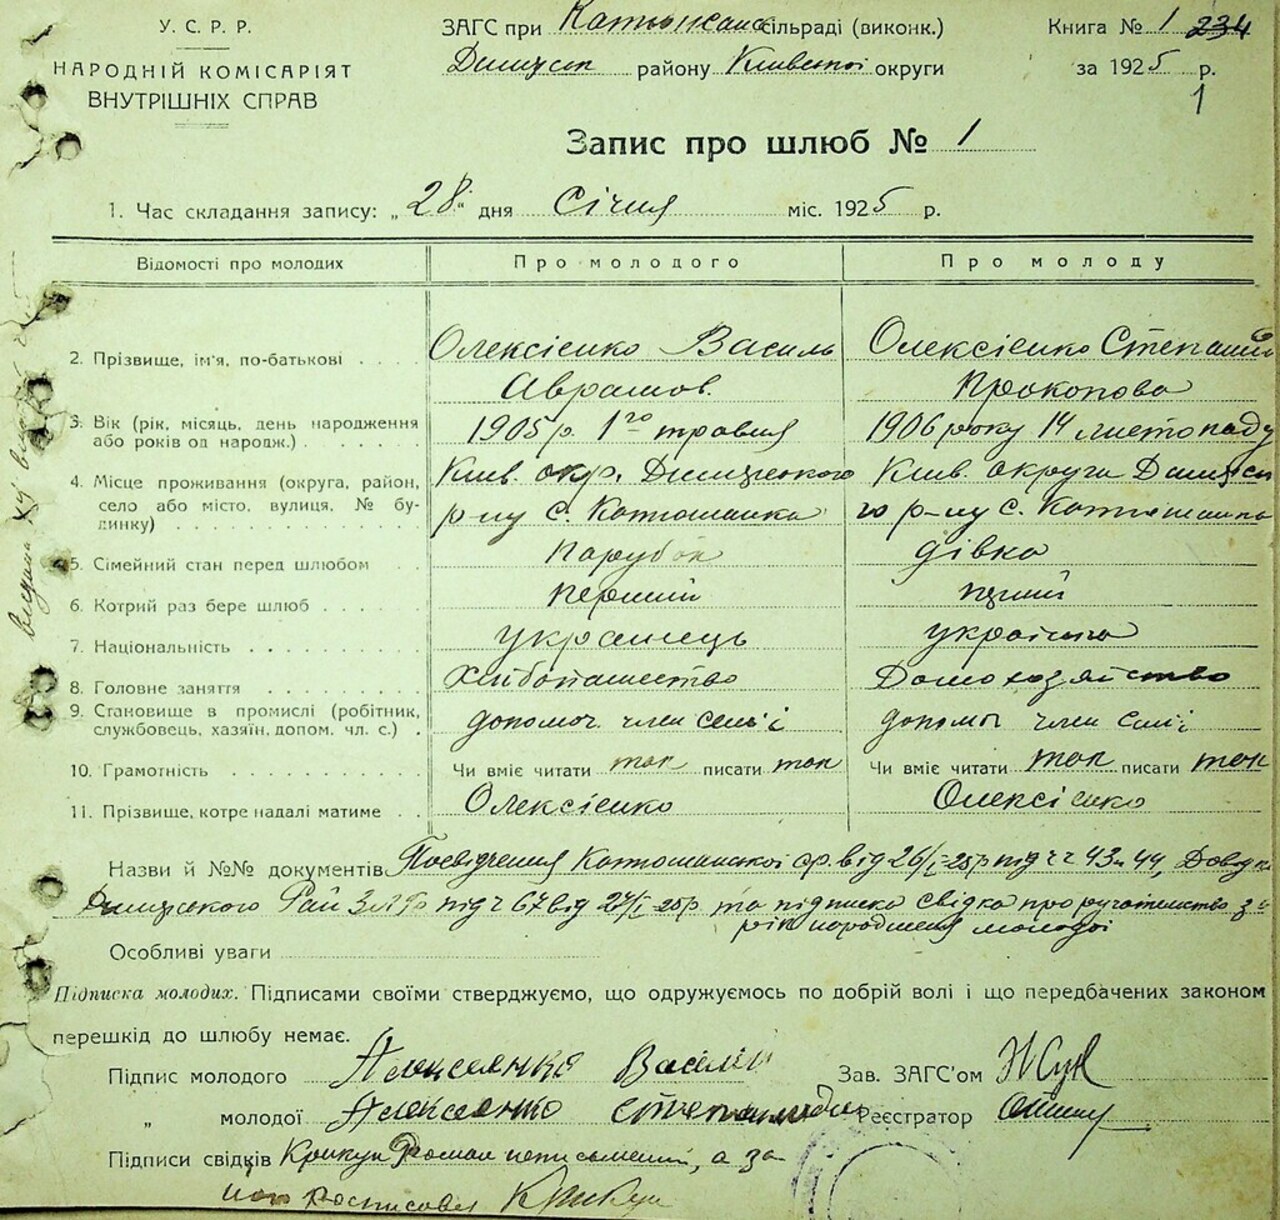 У. С. Р. Р.
НАРОДНІЙ КОМІСАРІЯТ
ВНУТРІШНІХ СПРАВ
ЗАГС при Катюжанс сільраді (виконк.)
Димерск району Київської округи
Книга № 1 234
за 1925 р.
1
Запис про шлюб № 1
1. Час складання запису: „28“ дня Січня міс. 1925 р.
Відомості про молодих Про молодого Про молоду
2. Прізвище, ім'я, по-батькові . . . . Олексієнко Василь Олексієнко Степанид
Аврамов. Прокопова
3. Вік (рік, місяць, день народження 1905 р. 1го травня 1906 року 14 листопаду
або років од народж.) . . . . . .
4. Місце проживання (округа, район, Київ. окр. Димерського Київ. округи Димерсь
село або місто, вулиця, № бу- р-ну с. Катюжанка го р-ну с. Катюжанка
динку) . . . . . . . . . . .
5. Сімейний стан перед шлюбом . . Парубок дівка
6. Котрий раз бере шлюб . . . . . перший перший
7. Національність . . . . . . . . українець українка
8. Головне заняття . . . . . . . . Хлібопашество Домохозяйство
9. Становище в промислі (робітник, допомоч. член семьі допомоч член сімї
службовець, хазяїн, допом. чл. с.) .
10. Грамотність . . . . . . . . . . Чи вміє читати так писати так Чи вміє читати так писати так
11. Прізвище, котре надалі матиме . . Олексієнко Олексієнко
Назви й №№ документів Посвідчення Катюжанської ср. від 26/I-25р під чч 43 и 44, Довідка
Димерського Рай під ч 67 від 27/I-25р та підписка свідка про ручательство за
рік народження молодої
Особливі уваги
Підписка молодих. Підписами своїми стверджуємо, що одружуємось по добрій волі і що передбачених законом
перешкід до шлюбу немає.
Підпис молодого Алексеенко Василій Зав. ЗАГС'ом
„ молодої Алексеенко Реєстратор
Підписи свідків Крикун Роман неписьменний, а за
него росписовся Крикун